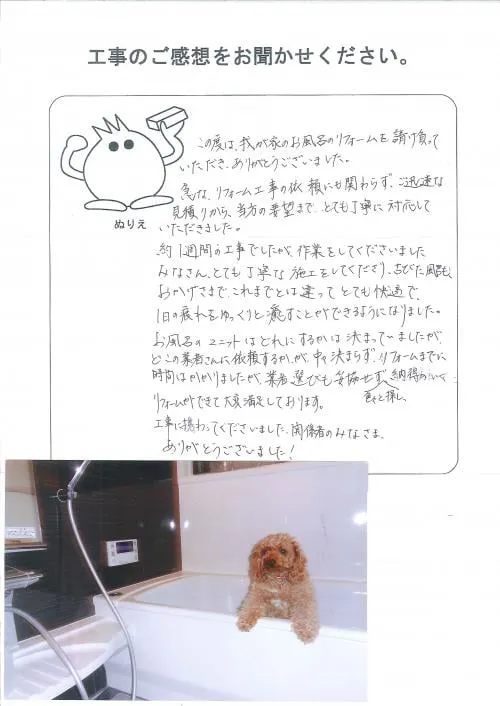 工事のご感想をお聞かせください。
ぬりえ
この度は、我が家のお風呂のリフォームを請け負って
いただき、ありがとうございました。
急な、リフォーム工事の依頼にも関わらず、ご迅速な
見積りから、当方の要望まで、とても丁寧に対応して
いただきました。
約1週間の工事でしたが、作業をしてくださいました
みなさん、とても丁寧な施工をしてくださり、古びた風呂も、
おかげさまで、これまでとは違ってとても快適で、
1日の疲れをゆっくりと癒すことができるようになりました。
お風呂のユニットはどれにするかは決まっていましたが、
どこの業者さんに依頼するか、が中々決まらず、リフォームまでに
時間はかかりましたが、業者選びも妥協せず、納得のいく
色々と探し、
リフォームができて大変満足しております。
工事に携わってくださいました、関係者のみなさま。
ありがとうございました!